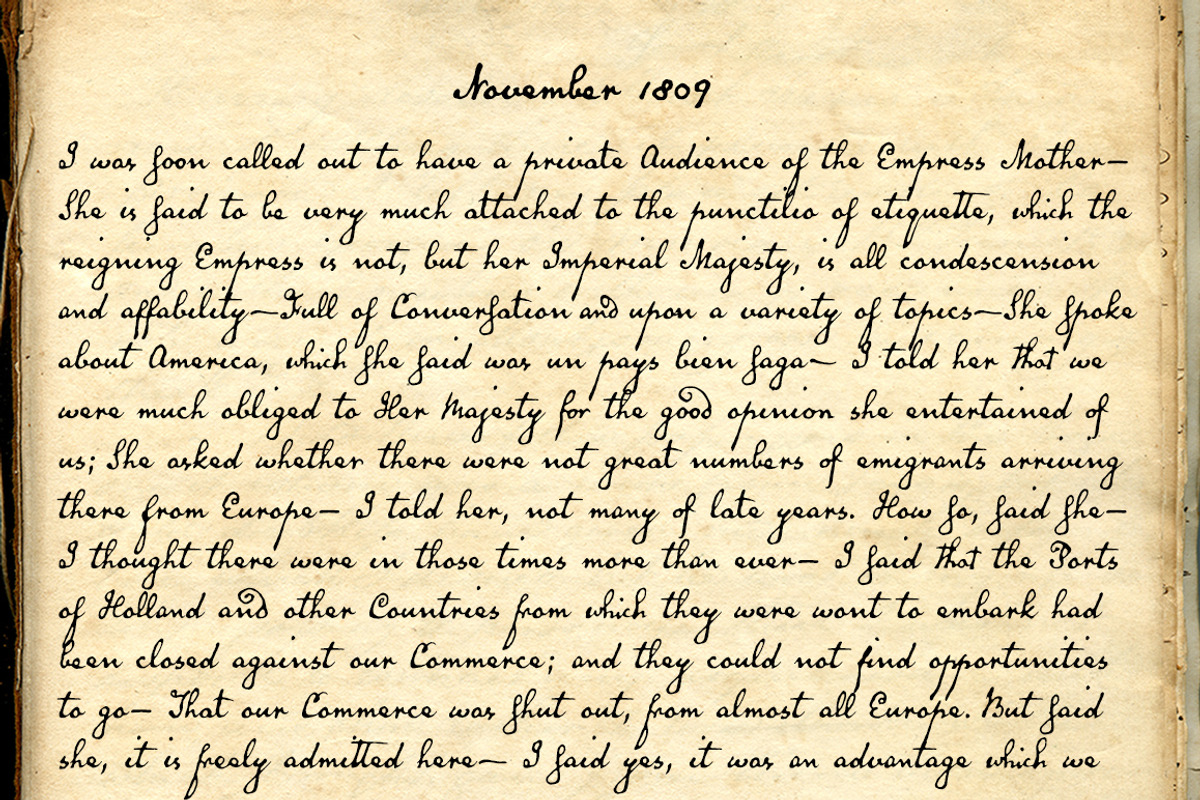 November 1809
I was soon called out to have a private Audience of the Empress Mother—
She is said to be very much attached to the punctilio of etiquette, which the
reigning Empress is not, but her Imperial Majesty, is all condescension
and affability—Full of Conversation and upon a variety of topics—She spoke
about America, which she said was un pays bien saga— I told her that we
were much obliged to Her Majesty for the good opinion she entertained of
us; She asked whether there were not great numbers of emigrants arriving
there from Europe— I told her, not many of late years. How so, said she—
I thought there were in those times more than ever— I said that the Ports
of Holland and other Countries from which they were wont to embark had
been closed against our Commerce; and they could not find opportunities
to go— That our Commerce was shut out, from almost all Europe. But said
she, it is freely admitted here— I said yes, it was an advantage which we